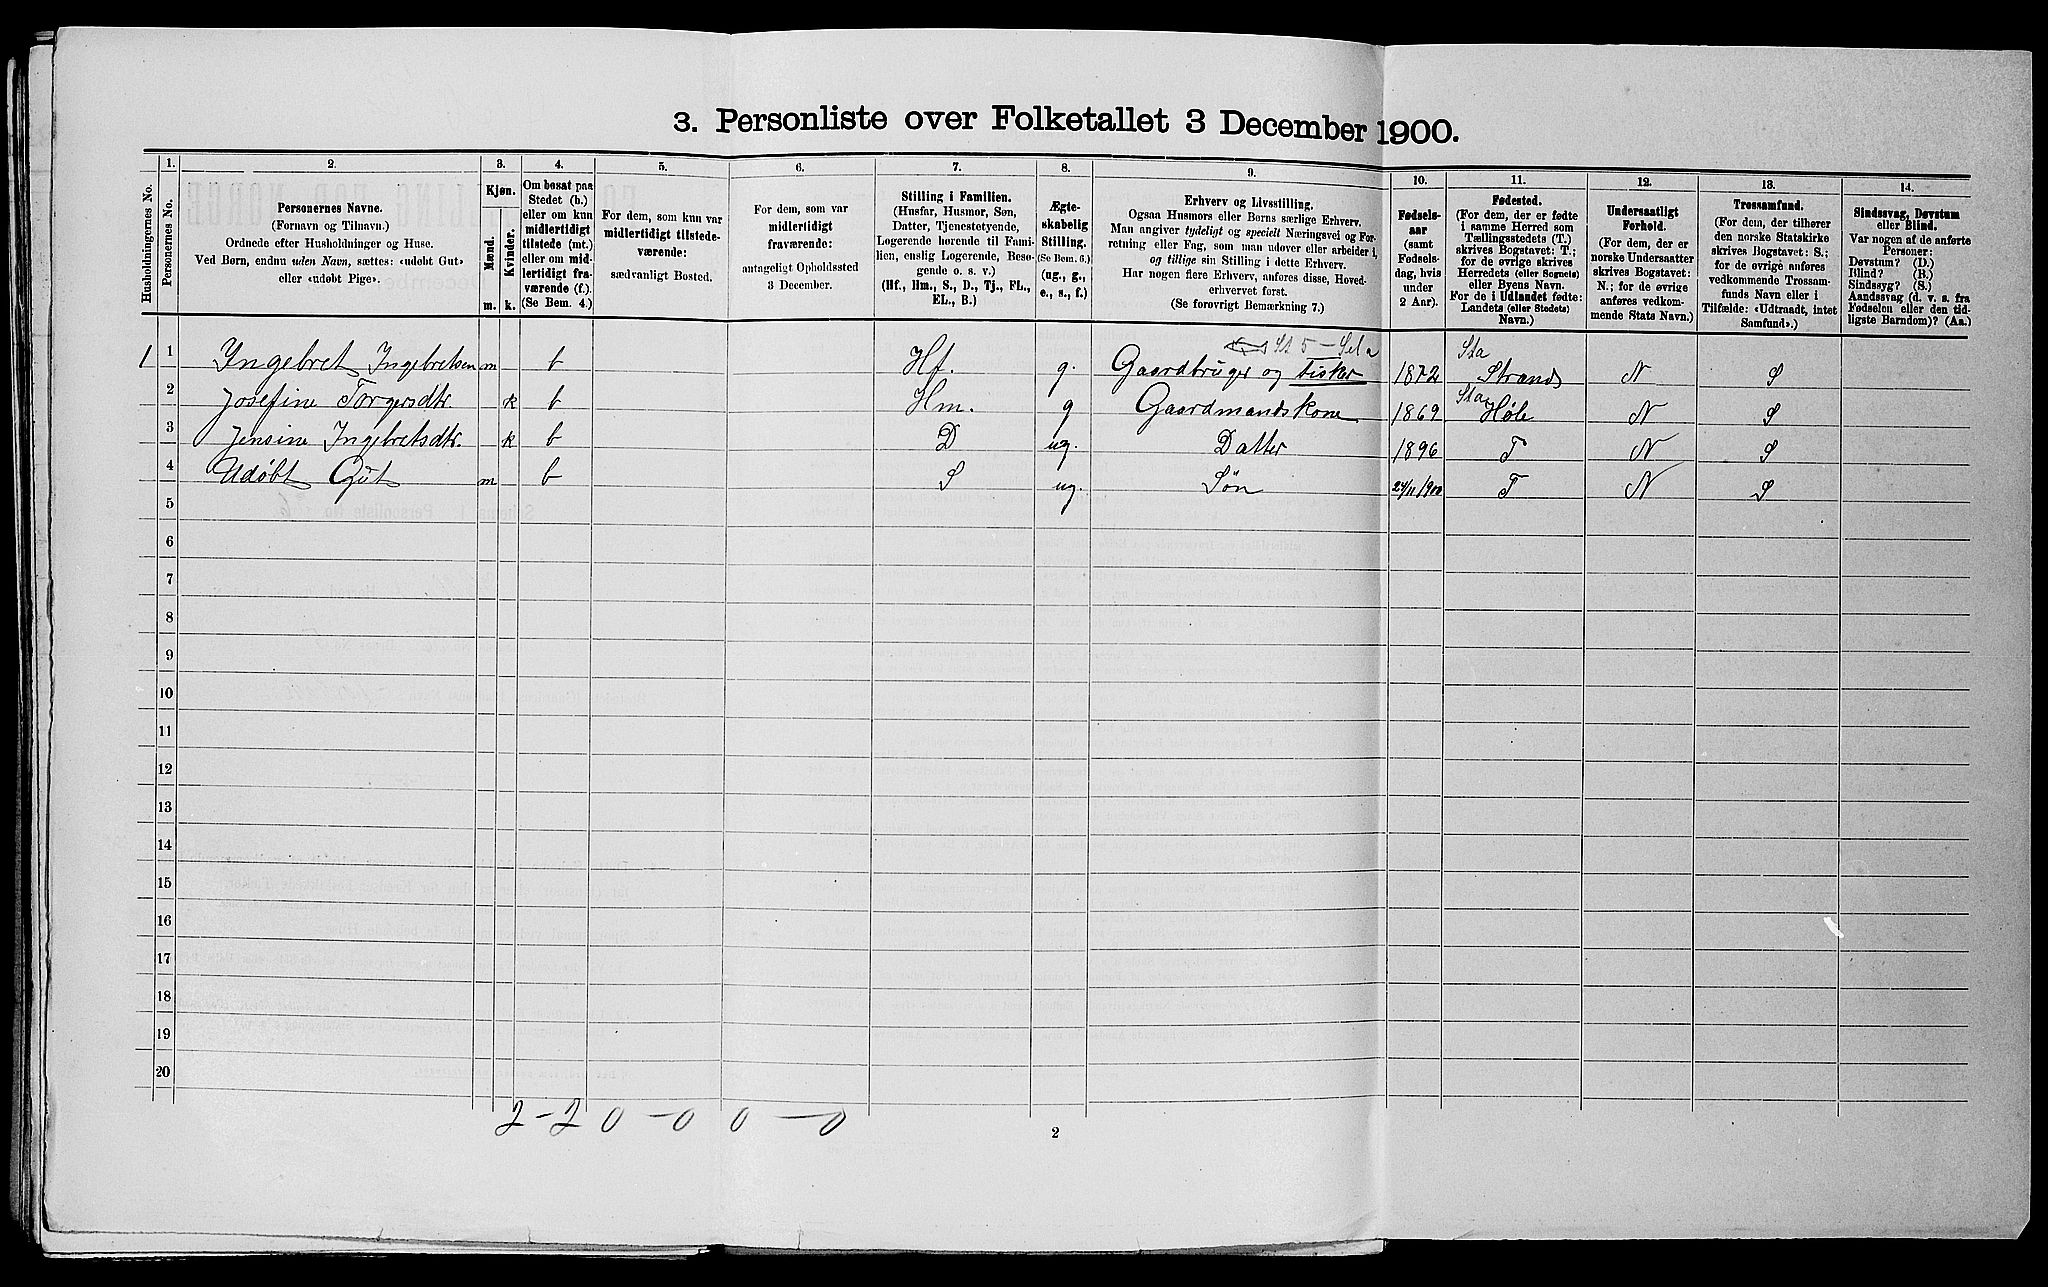 3. Personliste over Folketallet 3 December 1900.
Husholdningernes No.
1.
Personernes No.
2.
Personernes Navne.
(Fornavn og Tilnavn.)
Ordnede efter Husholdninger og Huse.
Ved Børn, endnu uden Navn, sættes: «udøbt Gut»
eller «udøbt Pige».
3.
Kjøn.
Mænd.
Kvinder.
m.
k.
4.
Om bosat paa
Stedet (b.)
eller om kun
midlertidigt
tilstede (mt.)
eller om mid-
lertidigt fra-
værende (f.).
(Se Bem. 4.)
5.
For dem, som kun var
midlertidigt tilstede-
værende:
sædvanligt Bosted.
6.
For dem, som var
midlertidigt
fraværende:
antageligt Opholdssted
3 December.
7.
Stilling i Familien.
(Husfar, Husmor, Søn,
Datter, Tjenestetyende,
Logerende hørende til Fami-
lien, enslig Logerende, Besø-
gende o. s. v.)
(Hf., Hm., S., D., Tj., FL.,
EL., B.)
8.
Ægte-
skabelig
Stilling.
(Se Bem. 6.)
(ug., g.,
e., s., f.)
9.
Erhverv og Livsstilling.
Ogsaa Husmors eller Børns særlige Erhverv.
Man angiver tydeligt og specielt Næringsvei og For-
retning eller Fag, som man udøver eller arbeider i,
og tillige sin Stilling i dette Erhverv.
Har nogen flere Erhverv, anføres disse, Hoved-
erhvervet først.
(Se forøvrigt Bemærkning 7.)
10.
Fødsels-
aar
(samt
Fødsels-
dag, hvis
under
2 Aar).
11.
Fødested.
(For dem, der er fødte
i samme Herred som
Tællingsstedets (T.)
skrives Bogstavet: T.;
for de øvrige skrives
Herredets (eller Sognets)
eller Byens Navn.
For de i Udlandet fødte:
Landets (eller Stedets)
Navn.)
12.
Undersaatligt
Forhold.
(For dem, der er
norske Undersaatter
skrives Bogstavet:
N.; for de øvrige
anføres vedkom-
mende Stats Navn.)
13.
Trossamfund.
(For dem, der tilhører
den norske Statskirke
skrives Bogstavet: S.;
for de øvrige anføres
vedkommende Trossam-
funds Navn eller i
Tilfælde: «Udtraadt, intet
Samfund».)
14.
Sindssvag, Døvstum
eller Blind.
Var nogen af de anførte
Personer:
Døvstum? (D.)
Blind? (B.)
Sindssyg? (S.)
Aandssvag (d. v. s. fra
Fødselen eller den tid-
ligste Barndom)? (Aa.)
1 1 Yngebret Ingebretsen m b Hf. g. Gaardbruger og Fisker 1872 Sta Strand N S
2 Josefine Torgersdtr. k b Hm. g Gaardmandskone 1869 Sta Høle N S
3 Jensine Ingebretsdtr. k b D ug. Datter 1896 T N S
4 Udøbt Gut m b S ug. Søn 24/11 1900 T N S
5
6
7
8
9
10
11
12
13
14
15
16
17
18
19
20
2 - 2 0 - 0 0 - 0
2